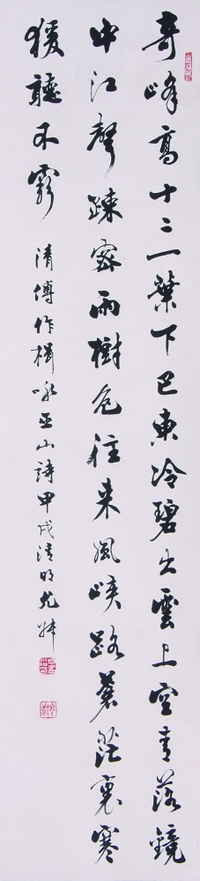 奇峰高十二一叶下巴東冷碧出雲上空青落鏡
中江聲疎密雨樹色往来風峽路蒼茫裏寒
猨聽不窮
清傅作楫咏巫山詩甲戌清明允婔